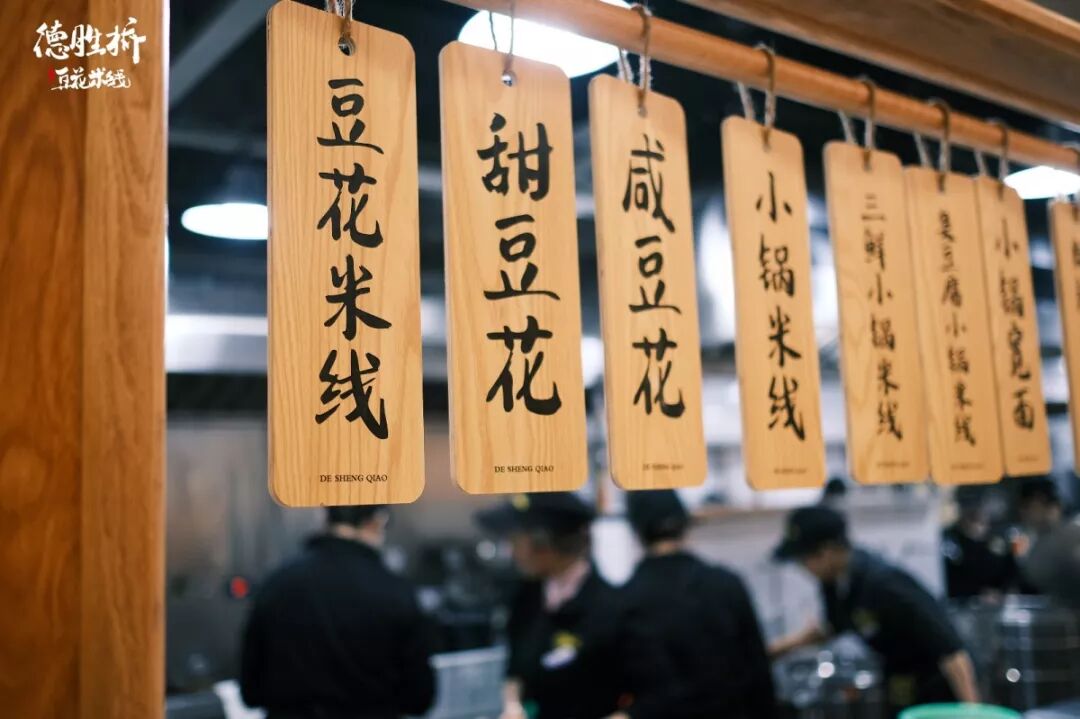 德胜桥
豆花米线
豆花米线
DE SHENG QIAO
甜豆花
DE SHENG QIAO
咸豆花
DE SHENG QIAO
小锅米线
DE SHENG QIAO
三鲜小锅米线
臭豆腐小锅米线
小锅宽面